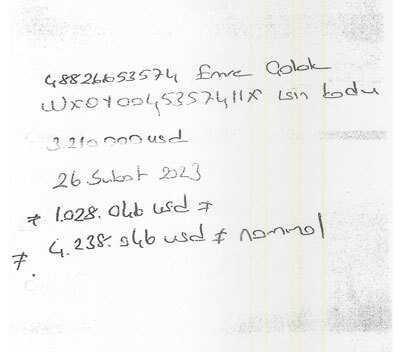 48826653574 Emre Çolak
WX0Y004535741IX Isın kodu
3.210.000 usd
26 Şubat 2023
≠ 1.028.046 usd ≠
≠ 4.238.046 usd ≠ nominal